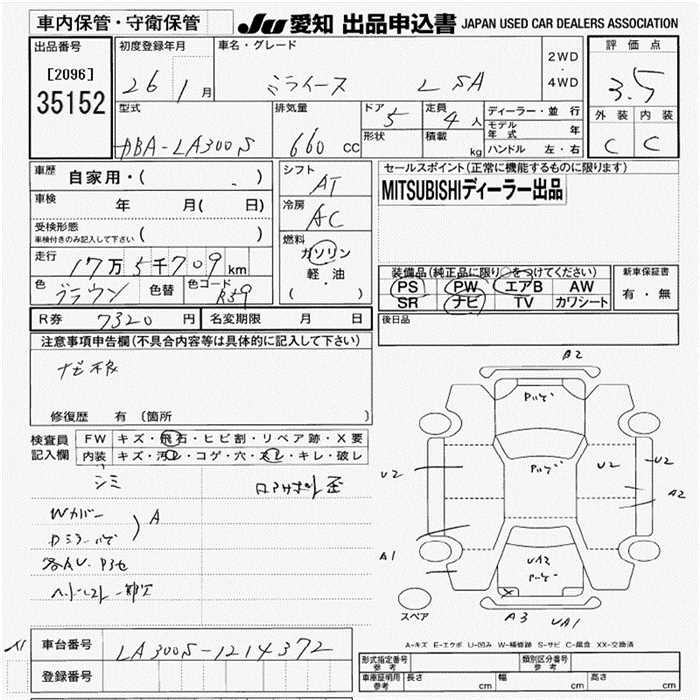 車内保管・守衛保管
JU 愛知 出品申込書 JAPAN USED CAR DEALERS ASSOCIATION
出品番号
[2096]
35152
初度登録年月
26 1 月
車名・グレード
ミライース L SA
2WD
・
4WD
評価点
3.5
外装 内装
C C
型式
DBA-LA300S
排気量
660 cc
ドア 5
形状
定員 4 人
積載 kg
ディーラー・並行
モデル年式 年
ハンドル 左・右
車歴 自家用・( )
車検 年 月( 日)
受検形態
車検付きのみ記入して下さい ( )
走行 17万5千709 km
色 ブラウン 色替 色コード R59
シフト
AT
冷房
AC
燃料
ガソリン
軽・油
( )
セールスポイント(正常に機能するものに限ります)
MITSUBISHIディーラー出品
装備品(純正品に限り○をつけてください)
PS PW エアB AW
SR ナビ TV カワシート
新車保証書
有・無
R券 7320 円 名変期限 月 日
後日品
注意事項申告欄(不具合内容等は具体的に記入して下さい)
ナビ本板
修復歴 有(箇所 )
検査員記入欄
FW キズ・飛石・ヒビ割・リペア跡・X要
内装 キズ・汚レ・コゲ・穴・スレ・キレ・破レ
シミ
Wカバー
A
A2
U2
U2
U2
A2
A1
UA2
A3
UA1
スペア
A-キズ E-エクボ U-凹み W-補修跡 S-サビ C-腐食 XX-交換済
A1
車台番号 LA300S-1214372
登録番号
形式指定番号 参考
類別区分番号 参考
車庫証明用 参考 長さ cm 幅 cm 高さ cm